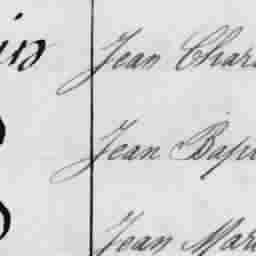 Jean Char
Jean Bap
Jean Mar